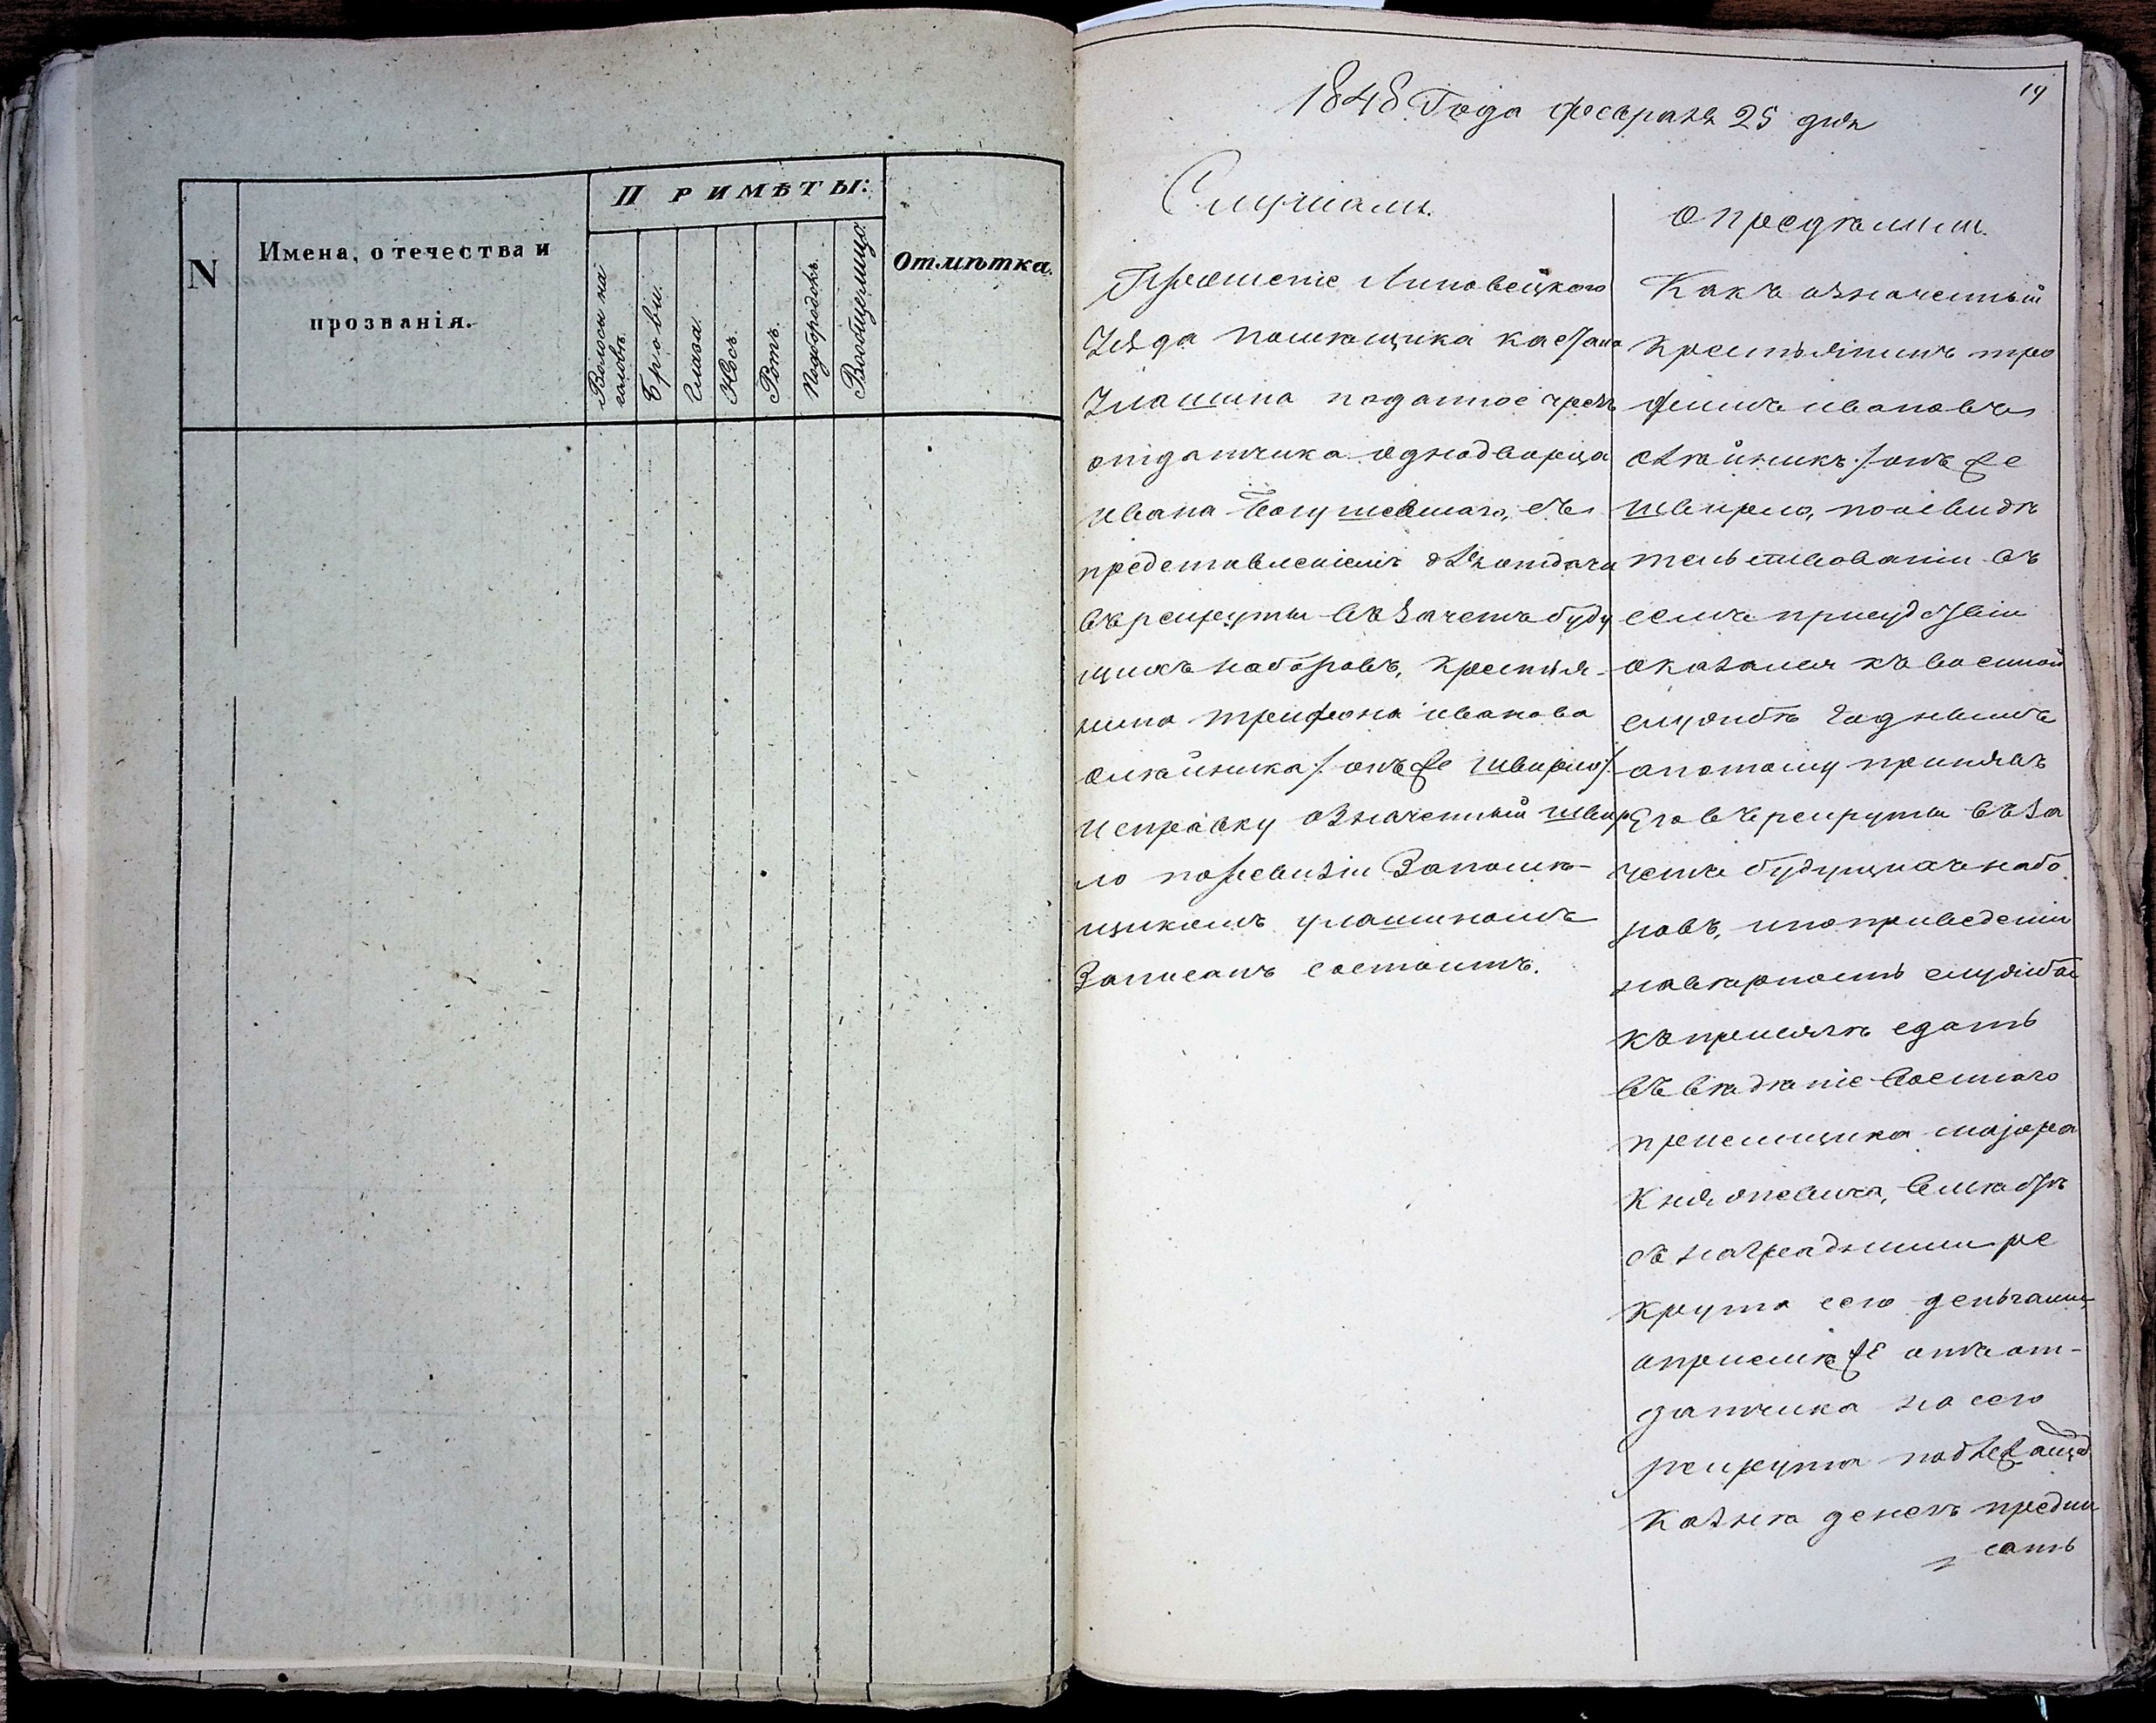 N
Имена, отечества и
прозванія.
П Р И М Ѣ Т Ы:
Волосы на
головѣ.
Брови.
Глаза.
Носъ.
Ротъ.
Подбородокъ.
Вообщелицо
Отмѣтка.
19
1848 Года февраля 25 дня
Слушали.
Прошеніе Липовецкого
Уѣзда помѣщика каетана
Улашина поданное чрезъ
отдатчика однодворца
Ивана Богушевскаго, съ
представленіемъ для отдачи
въ рекруты въ зачетъ буду
щихъ наборовъ, крестья-
нина трифона иванова
олѣйника /. онъ же шварно ./
Исправку означенный швар
но по ревизіи За помѣ-
щикомъ улашиномъ
Записанъ состоитъ.
Опредѣлили.
Какъ означенный
крестьянинъ три
фонъ ивановъ
олѣйникъ ./ онъ же
шварно, по освидѣ
тельствованіи въ
семъ присудствіи
оказался къ военной
службѣ Годнымъ
а потому принявъ
Его въ рекруты въ за
четъ будущихъ набо
ровъ, и по приведеніи
на вѣрность службы
къ присягѣ сдать
въ вѣдѣніе военнаго
пріемщика маіора
вмѣстѣ
съ наградными ре
крута сего деньгами
опріемѣ же отъ от-
датчика на сего
рекрута подлежащ
казнѣ денегъ предпи
сать